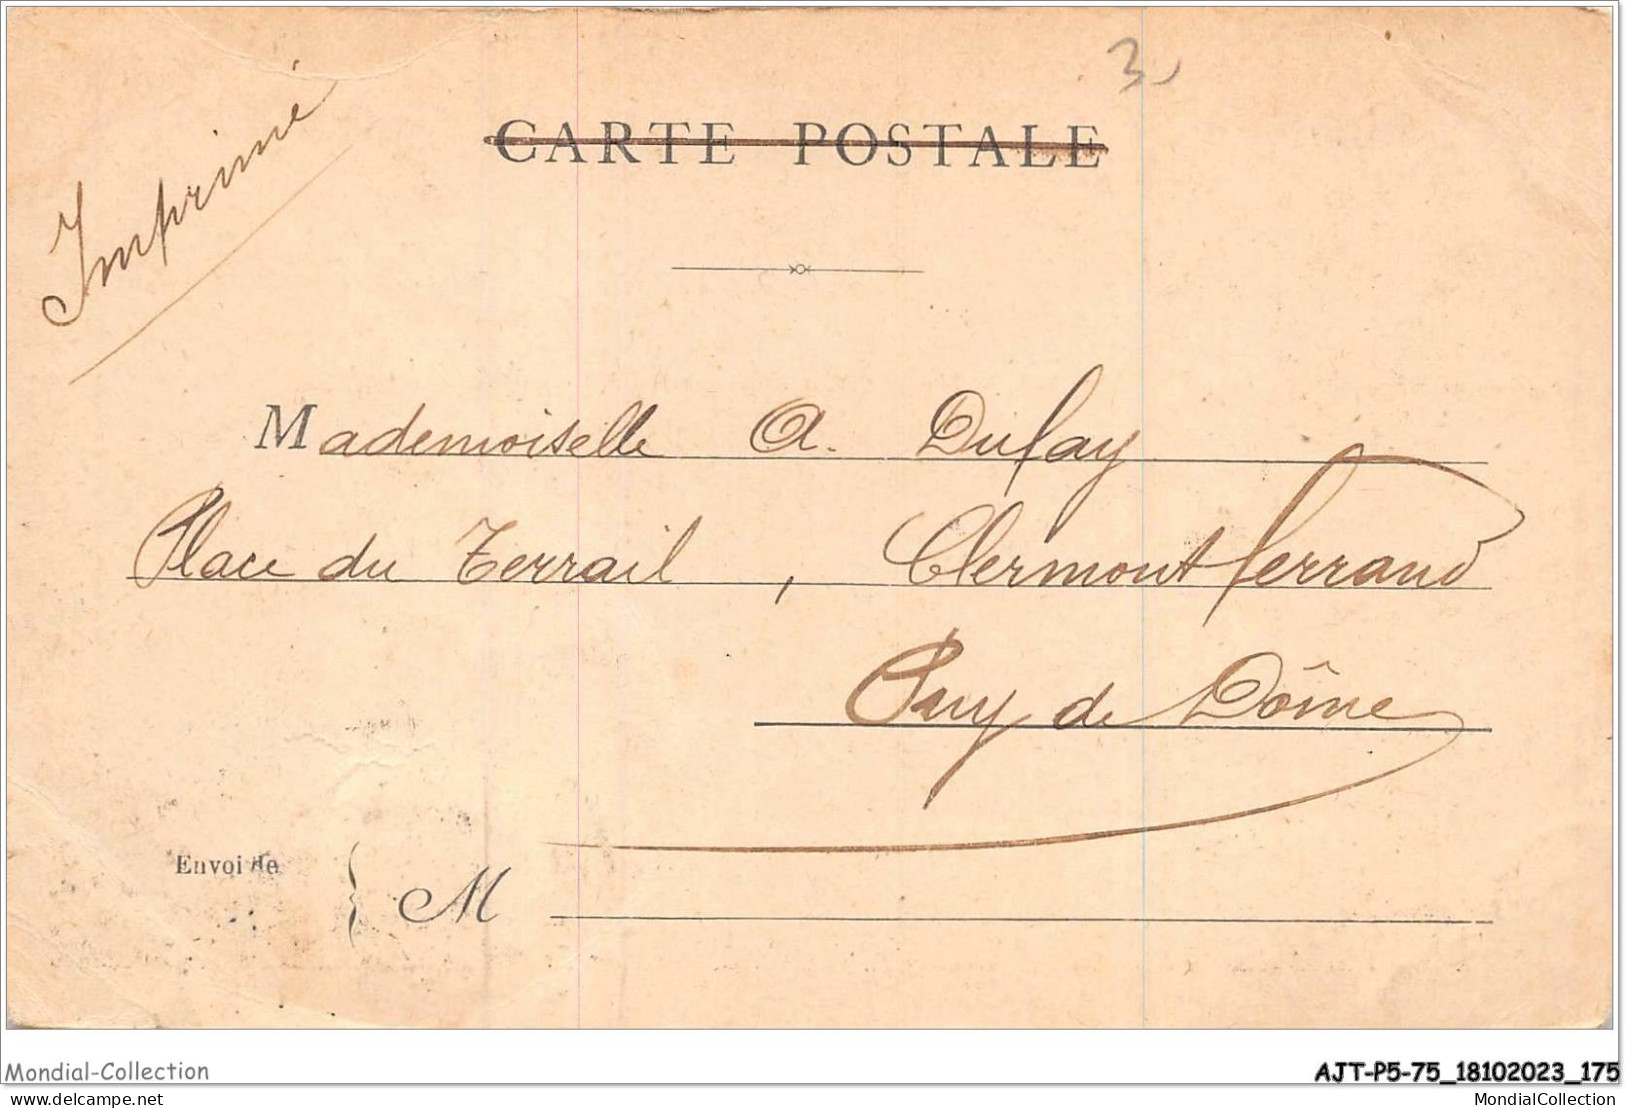 3
CARTE POSTALE
Imprimé
Mademoiselle A. Dufay
Place du Terrail, Clermont ferrand
Puy de Dôme
Envoi de
M
Mondial-Collection
AJT-P5-75_18102023_175
delcampe.net
MondialCollection